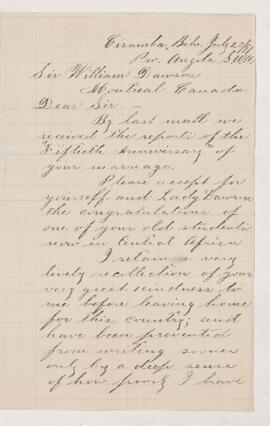 Cisamba, Bihe, July 23/97
Pr. Angola S.W.A.
Sir William Dawson
Montreal Canada
Dear Sir -
By last mail we
received the reports of the
"Fiftieth Anniversary" of
your marriage.
Please accept for
yourself and Lady Dawson
the congratulations of
one of your old students
now in Central Africa
I retain a very
lively recollection of your
very great kindness to
me before leaving home
for this country; and
have been prevented
from writing sooner
only by a deep sense
of how poorly I have